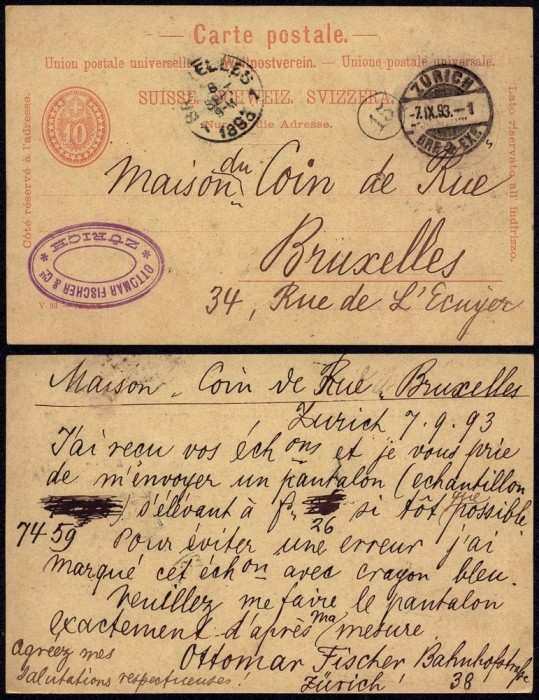 Carte postale.
Union postale universelle. Weltpostverein. Unione postale universale.
SUISSE. SCHWEIZ. SVIZZERA.
Nur für die Adresse.
Côté réservé à l'adresse.
Lato riservato all' indirizzo.
10
15
ZÜRICH
-7.IX.93.-1
BRF. EXP.
BRUXELLES
1893
OTTOMAR FISCHER & Cie
* ZÜRICH *
Maison du Coin de Rue
Bruxelles
34, Rue de L'Ecuyer
Maison "Coin de Rue" Bruxelles
Zurich 7.9.93
J'ai reçu vos échons et je vous prie
de m'envoyer un pantalon (echantillon
) s'élevant à fr. 26 si tôt que possible
7459
Pour éviter une erreur j'ai
marqué cet échon avec crayon bleu.
Veuillez me faire le pantalon
exactement d'après ma mesure.
Agreez mes
salutations respectueuses!
Ottomar Fischer Bahnhofstraße
Zürich! 38